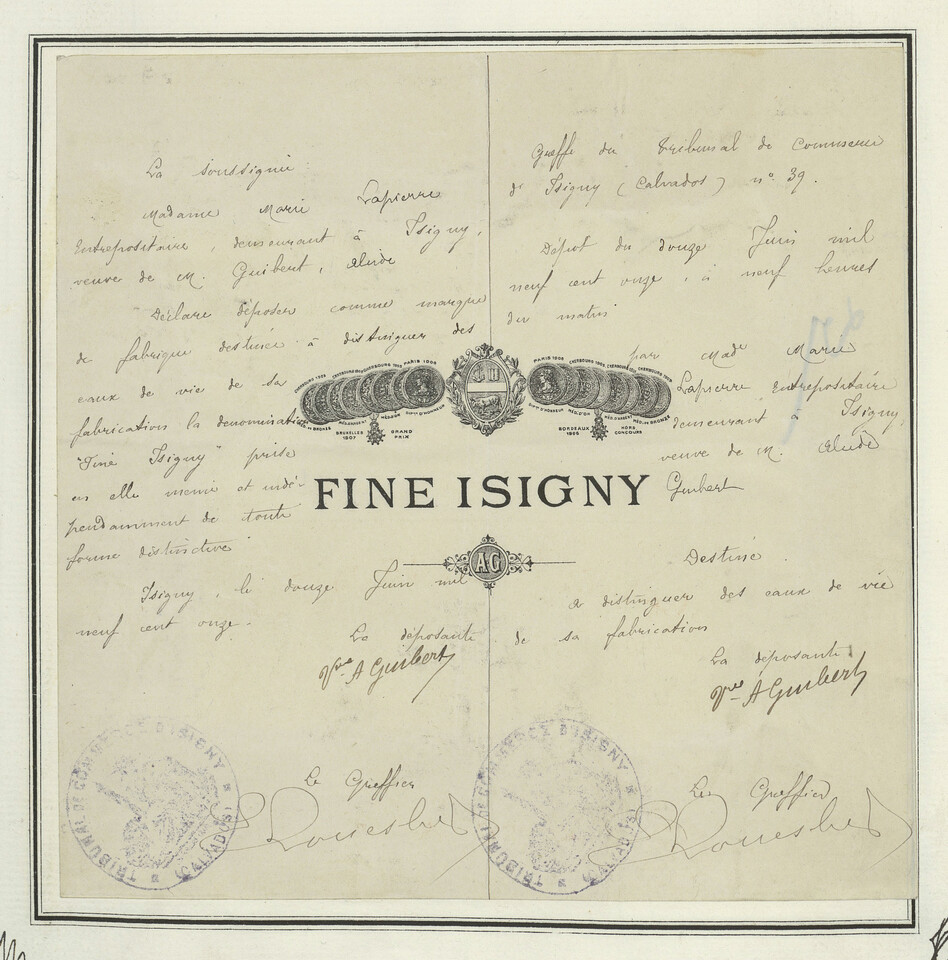 La soussignée
Madame Marie Lapierre
Entrepositaire, demeurant à Isigny,
veuve de M. Guibert, Alcide
Déclare déposer comme marque
de fabrique destinée à distinguer des
eaux de vie de sa
fabrication la dénomination
"Fine Isigny" prise
en elle même et indé-
pendamment de toute
forme distinctive
Isigny, le douze Juin mil
neuf cent onze.
La déposante
Vve A Guibert
Le Greffier
TRIBUNAL DE COMMERCE D'ISIGNY
(CALVADOS)
CHERBOURG
PARIS
MED. DE BRONZE
DIP. D'HONNEUR
BRUXELLES
1907
GRAND
PRIX
BORDEAUX
HORS
CONCOURS
FINE ISIGNY
AG
Greffe du Tribunal de Commerce
d'Isigny (Calvados) n° 39.
Dépot du douze Juin mil
neuf cent onze, à neuf heures
du matin
par Made Marie
Lapierre Entrepositaire
demeurant à Isigny,
veuve de M. Alcide
Guibert
Destiné
à distinguer des eaux de vie
de sa fabrication
La déposante
Vve A Guibert
Le Greffier
TRIBUNAL DE COMMERCE D'ISIGNY
(CALVADOS)